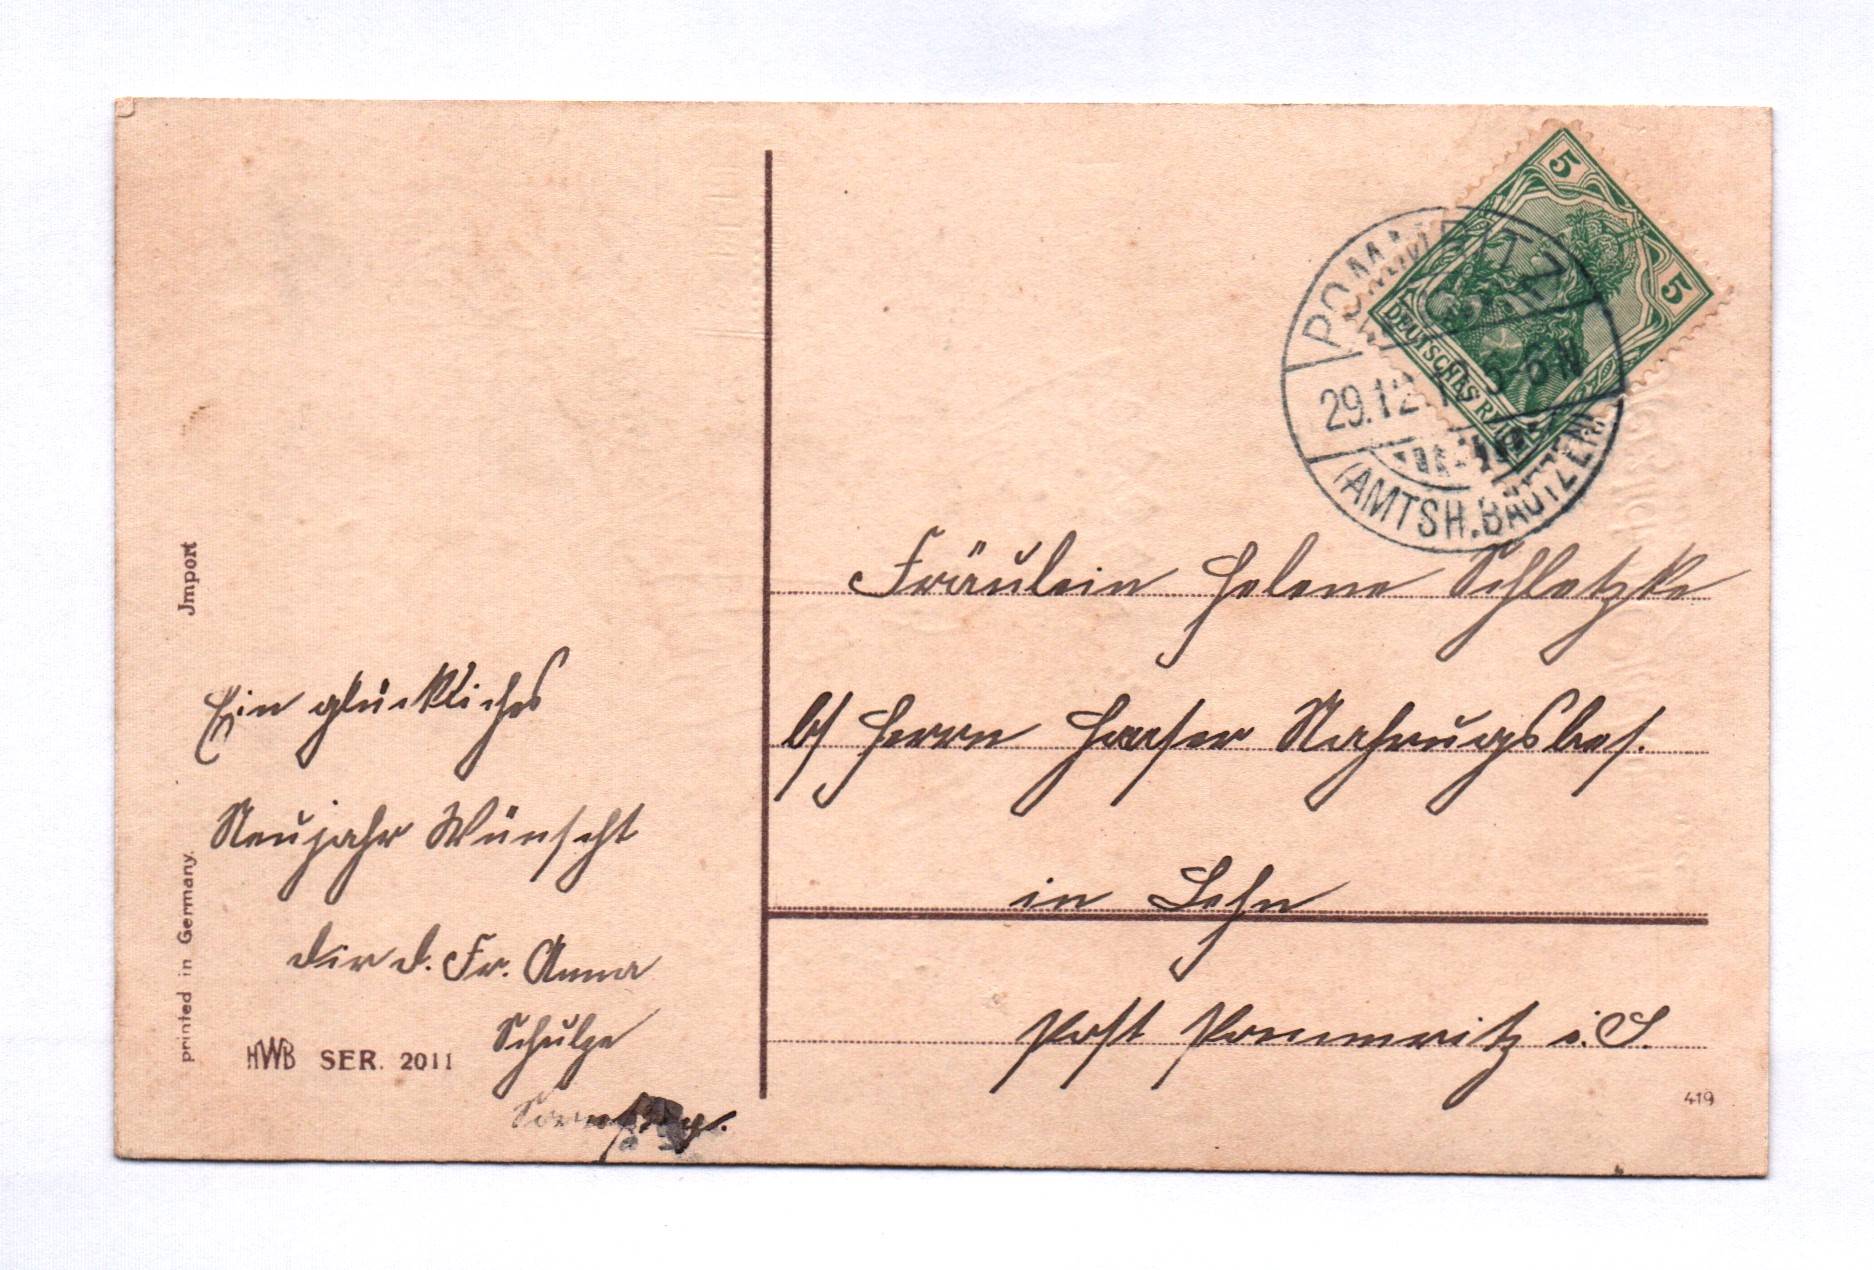 Jmport
printed in Germany.
Ein glückliches
Neujahr Wünscht
dir d. Fr. Anna
Schulze
HWB SER. 2011
5
5
DEUTSCHES REICH
POMMRITZ
29.12. 5-6N
(AMTSH. BAUTZEN)
Fräulein Helene Schletzke
b/ Herrn Haaser Nahrugsbes.
in Lehn
Post Pommritz i. S.
419